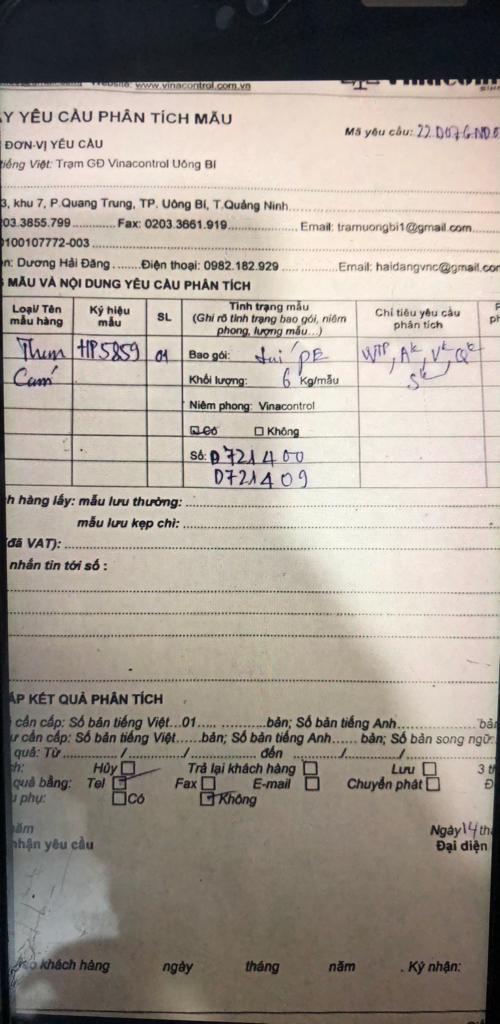 Website: www.vinacontrol.com.vn
Y YÊU CẦU PHÂN TÍCH MẪU
Mã yêu cầu: 22.D07GND
ĐƠN VỊ YÊU CẦU
tiếng Việt: Trạm GĐ Vinacontrol Uông Bí
3, khu 7, P.Quang Trung, TP. Uông Bí, T.Quảng Ninh
03.3855.799 Fax: 0203.3661.919 Email: tramuongbi1@gmail.com
0100107772-003
n: Dương Hải Đăng Điện thoại: 0982.182.929 Email: haidangvnc@gmail.com
MẪU VÀ NỘI DUNG YÊU CẦU PHÂN TÍCH
Loại/ Tên mẫu hàng Ký hiệu mẫu SL Tình trạng mẫu (Ghi rõ tình trạng bao gói, niêm phong, lượng mẫu...) Chỉ tiêu yêu cầu phân tích
Than HP5859 01 Bao gói: túi PE WTP, Ak, Vk, Qk
Cám Khối lượng: 6 Kg/mẫu Sk
Niêm phong: Vinacontrol
Có Không
Số: D721400
D721409
h hàng lấy: mẫu lưu thường:
mẫu lưu kẹp chì:
(đã VAT):
nhắn tin tới số :
ẤP KẾT QUẢ PHÂN TÍCH
cần cấp: Số bản tiếng Việt...01 bản; Số bản tiếng Anh bản
ư cần cấp: Số bản tiếng Việt bản; Số bản tiếng Anh bản; Số bản song ngữ:
quả: Từ / / đến / /
h: Hủy Trả lại khách hàng Lưu 3 th
quả bằng: Tel Fax E-mail Chuyển phát
u phụ: Có Không
năm Ngày 14 th
nhận yêu cầu Đại diện
khách hàng ngày tháng năm . Ký nhận: